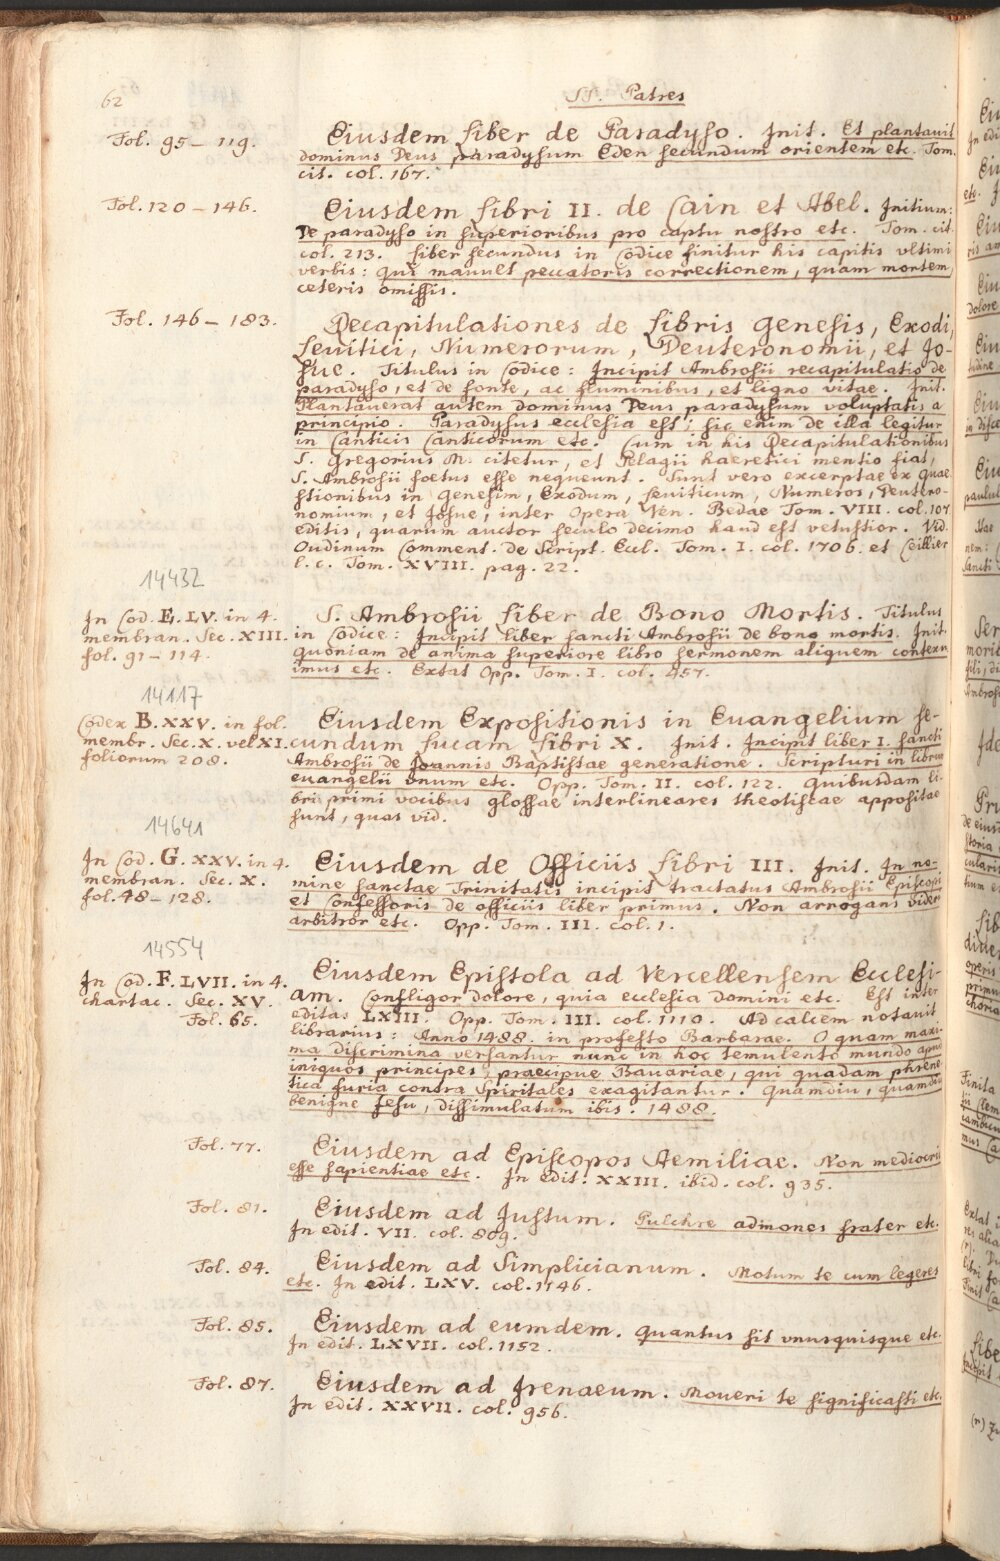 62
SS. Patres
Fol. 95 – 119.
Eiusdem Liber de Paradyso. Init. Et plantauit
dominus Deus paradysum Eden secundum orientem etc. Tom.
cit. col. 167.
Fol. 120 – 146.
Eiusdem Libri II. de Cain et Abel. Initium:
De paradyso in superioribus pro captu nostro etc. Tom. cit.
col. 213. Liber secundus in Codice finitur his capitis vltimi
verbis: qui mauult peccatoris correctionem, quam mortem,
ceteris omissis.
Fol. 146 – 183.
Recapitulationes de Libris Genesis, Exodi,
Leuitici, Numerorum, Deuteronomii, et Jo-
sue. Titulus in Codice: Incipit Ambrosii recapitulatio de
paradyso, et de fonte, ac fluminibus, et ligno vitae. Init.
Plantauerat autem dominus Deus paradysum voluptatis a
principio. Paradysus ecclesia est; sic enim de illa legitur
in Canticis Canticorum etc. Cum in his Recapitulationibus
S. Gregorius M. citetur, et Pelagii haeretici mentio fiat,
S. Ambrosii foetus esse nequeunt. Sunt vero excerptae ex Quae
stionibus in Genesim, Exodum, Leuiticum, Numeros, Deutero-
nomium, et Josue, inter Opera Ven. Bedae Tom. VIII. col. 107.
editis, quarum auctor seculo decimo haud est vetustior. Vid.
Oudinum Comment. de Script. Eccl. Tom. I. col. 1706. et Ceillier
l. c. Tom. XVIII. pag. 22.
14432
In Cod. E. LV. in 4.
membran. Sec. XIII.
fol. 91 – 114.
S. Ambrosii Liber de Bono Mortis. Titulus
in Codice: Incipit liber sancti Ambrosii de bono mortis. Init.
quoniam de anima superiore libro sermonem aliquem contexu
imus etc. Extat Opp. Tom. I. col. 457.
14117
Codex B. XXV. in fol.
membr. Sec. X. vel XI.
foliorum 208.
Eiusdem Expositionis in Euangelium se-
cundum Lucam Libri X. Init. Incipit liber I. sancti
Ambrosii de Joannis Baptistae generatione. Scripturi in librum
euangelii vnum etc. Opp. Tom. II. col. 122. Quibusdam li-
bri primi vocibus glossae interlineares theotiscae appositae
sunt, quas vid.
14641
In Cod. G. XXV. in 4.
membran. Sec. X.
fol. 48 – 128.
Eiusdem de Officiis Libri III. Init. In no-
mine sanctae Trinitatis incipit tractatus Ambrosii Episcopi
et Confessoris de officiis liber primus. Non arrogans videri
arbitror etc. Opp. Tom. III. col. 1.
14554
In Cod. F. LVII. in 4.
chartac. Sec. XV.
Fol. 65.
Eiusdem Epistola ad Vercellensem Ecclesi-
am. Confligor dolore, quia ecclesia domini etc. Est inter
editas LXIII. Opp. Tom. III. col. 1110. Ad calcem notauit
librarius: Anno 1488. in professo Barbarae. O quam maxi-
ma discrimina versantur nunc in hoc temulento mundo apud
iniquos principes, praecipue Bauariae, qui quadam phrene-
tica furia contra Spiritales exagitantur. Quamdiu, quamdiu
benigne Jesu, dissimulatum ibis. 1488.
Fol. 77.
Eiusdem ad Episcopos Aemiliae. Non mediocris
esse sapientiae etc. In edit. XXIII. ibid. col. 935.
Fol. 81.
Eiusdem ad Justum. Pulchre admones frater etc.
In edit. VII. col. 809.
Fol. 84.
Eiusdem ad Simplicianum. Motum te cum legeres
etc. In edit. LXV. col. 1146.
Fol. 85.
Eiusdem ad eumdem. Quantus sit vnusquisque etc.
In edit. LXVII. col. 1152.
Fol. 87.
Eiusdem ad Irenaeum. Moueri te significasti etc.
In edit. XXVII. col. 956.